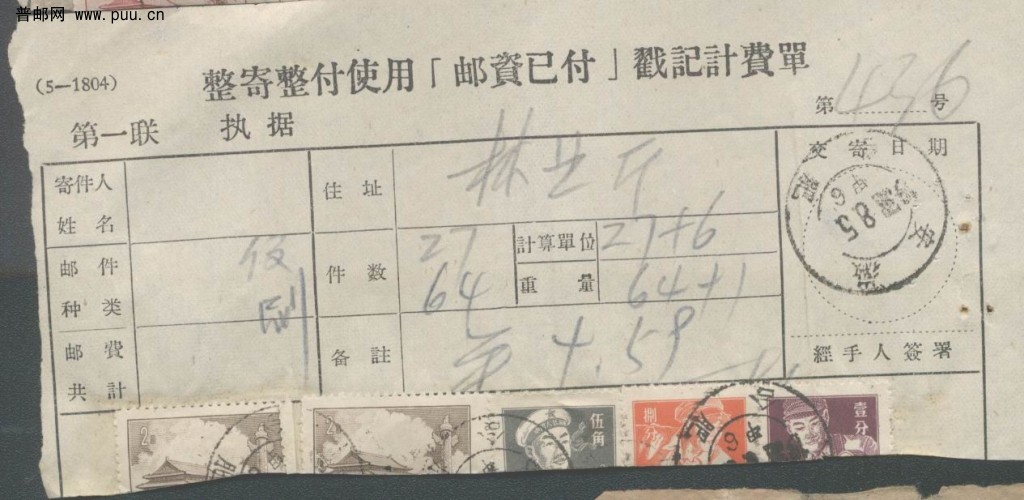 普邮网 www.puu.cn
(5—1804)
整寄整付使用「邮資已付」戳記計費單
第436号
第一联 执据
寄件人姓名
住址
林业厅
交寄日期
邮件种类
印刷
件数
27
64
計算單位
27+6
重量
64+1
邮費共計
备註
4.59
經手人簽署
安徽
58
2
2
伍角
捌分
壹分
肥